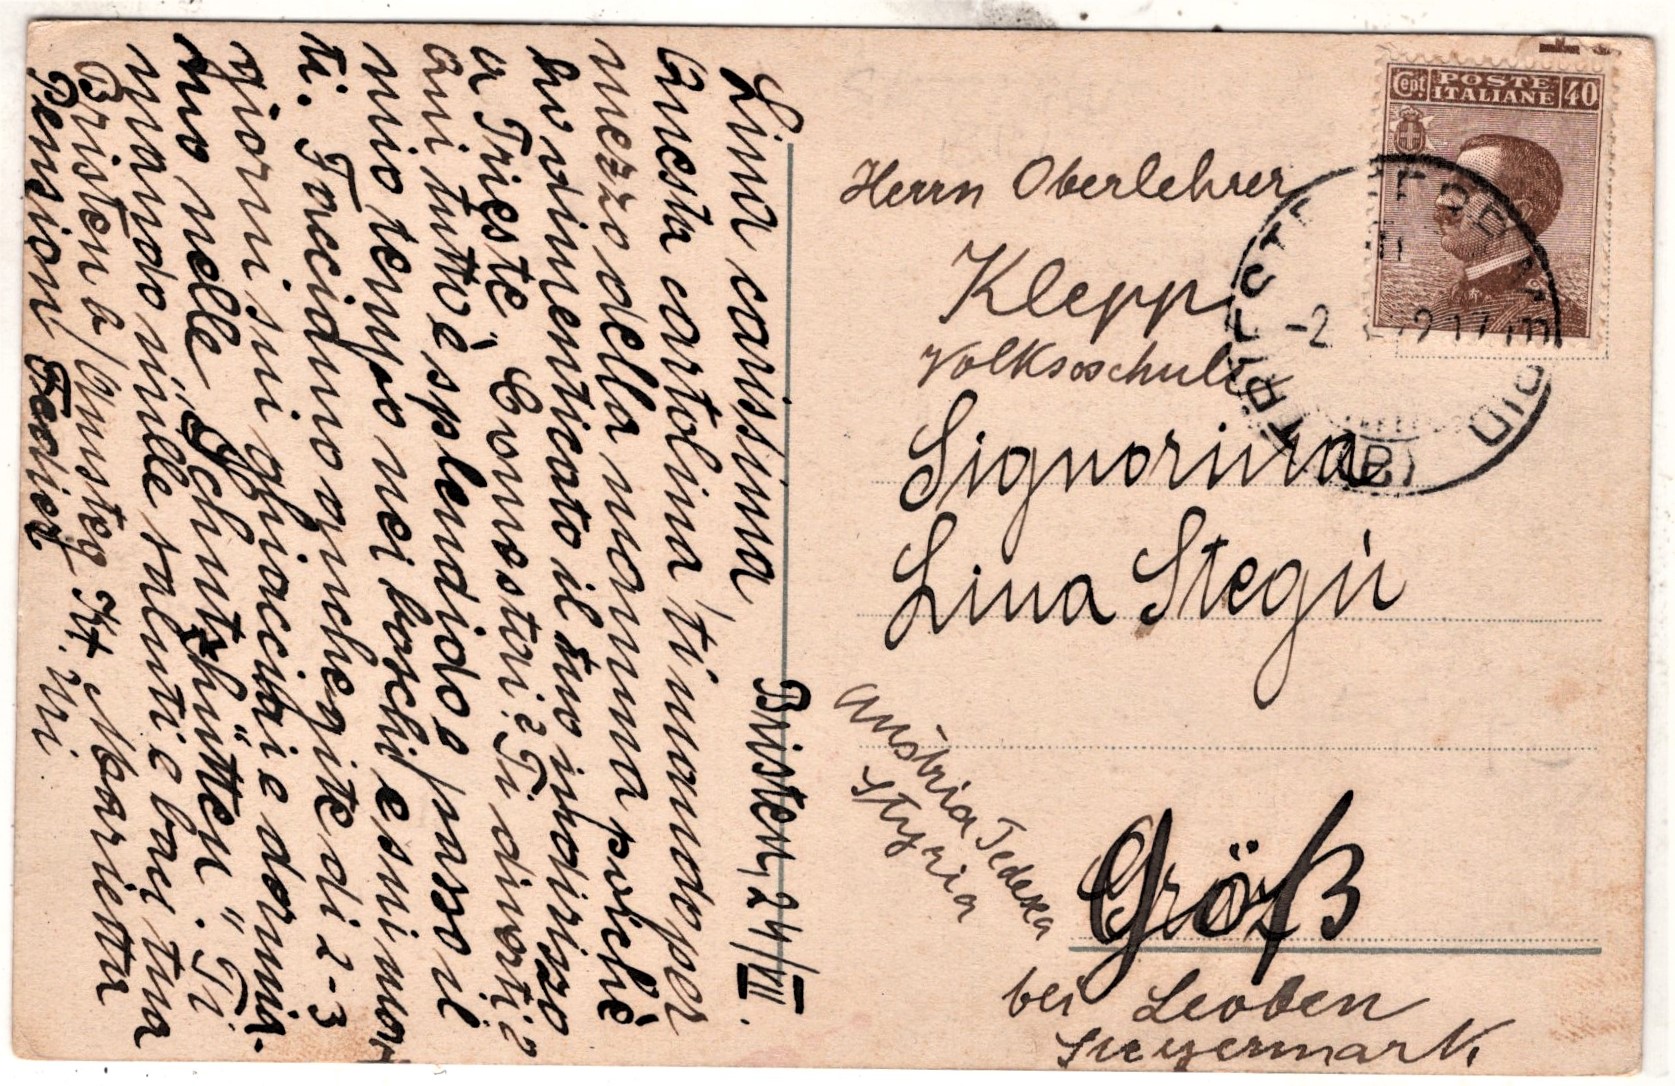 Bristen, 24/VII.
Lina carissima,
Questa cartolina ti mando per
mezzo della mamma poichè
ho dimenticato il tuo indirizzo
a Trieste. Come stai? Ti diverti?
Qui tutto è splendido e passo il
mio tempo nei boschi e sui mon-
ti. Facciamo anche gite di 2-3
giorni sui ghiacciai e dormia-
mo nelle „Schutzhütten". Ti
mando mille saluti e baci tua
Marietta
Bristen b/Amsteg Kt. Uri
Pension Fedier
Cent POSTE ITALIANE 40
TRIESTE
Herrn Oberlehrer
Klepp
Volksschule
Signorina
Lina Stegù
Austria Tedesca
Styria
Größ
bei Leoben
Steyermark